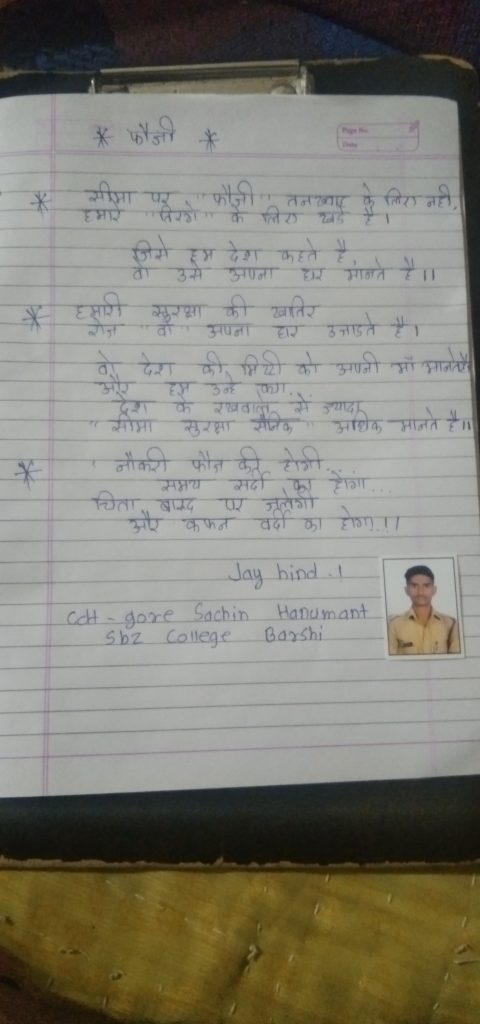 * फौजी *
Page No.
Date
* सीमा पर "फौजी" तनख्वाह के लिए नही,
हमारे "तिरंगे" के लिए खडे है।
जिसे हम देश कहते है,
वो उसे अपना घर मानते है।।
* हमारी सुरक्षा की खातिर
रोज "वो" अपना घर उजाडते है।
वो देश की मिट्टी को अपनी माँ मानते है
और हम उन्हे क्या..
देश के रखवाले से ज्यादा
"सीमा सुरक्षा सैनिक" अधिक मानते है।।
* नौकरी फौज की होगी...
समय सर्दी का होंगा...
चिता बारुद पर जलेगी
और कफन वर्दी का होगा.।।
Jay hind.!
Cdt - gore Sachin Hanumant
Sbz College Barshi